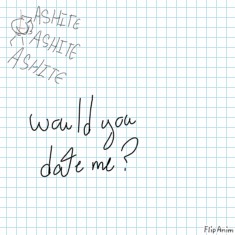 ASHITE
ASHITE
ASHITE
would you
date me?
FlipAnim